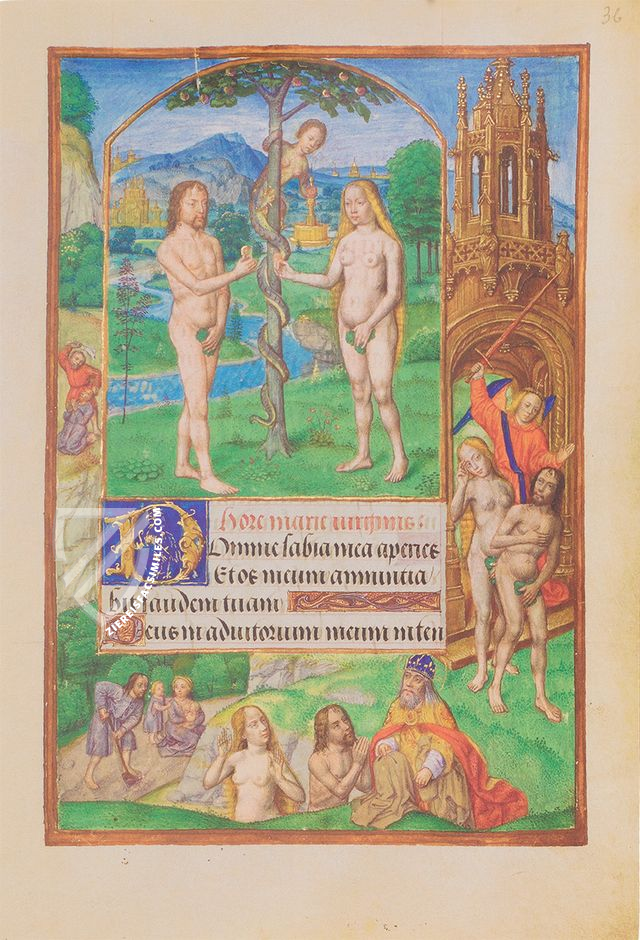 36
Hore marie virginis
Domine labia mea aperies
Et os meum annuncia
bit laudem tuam
Deus in adiutorium meum inten
ZIEREISFACSIMILES.COM